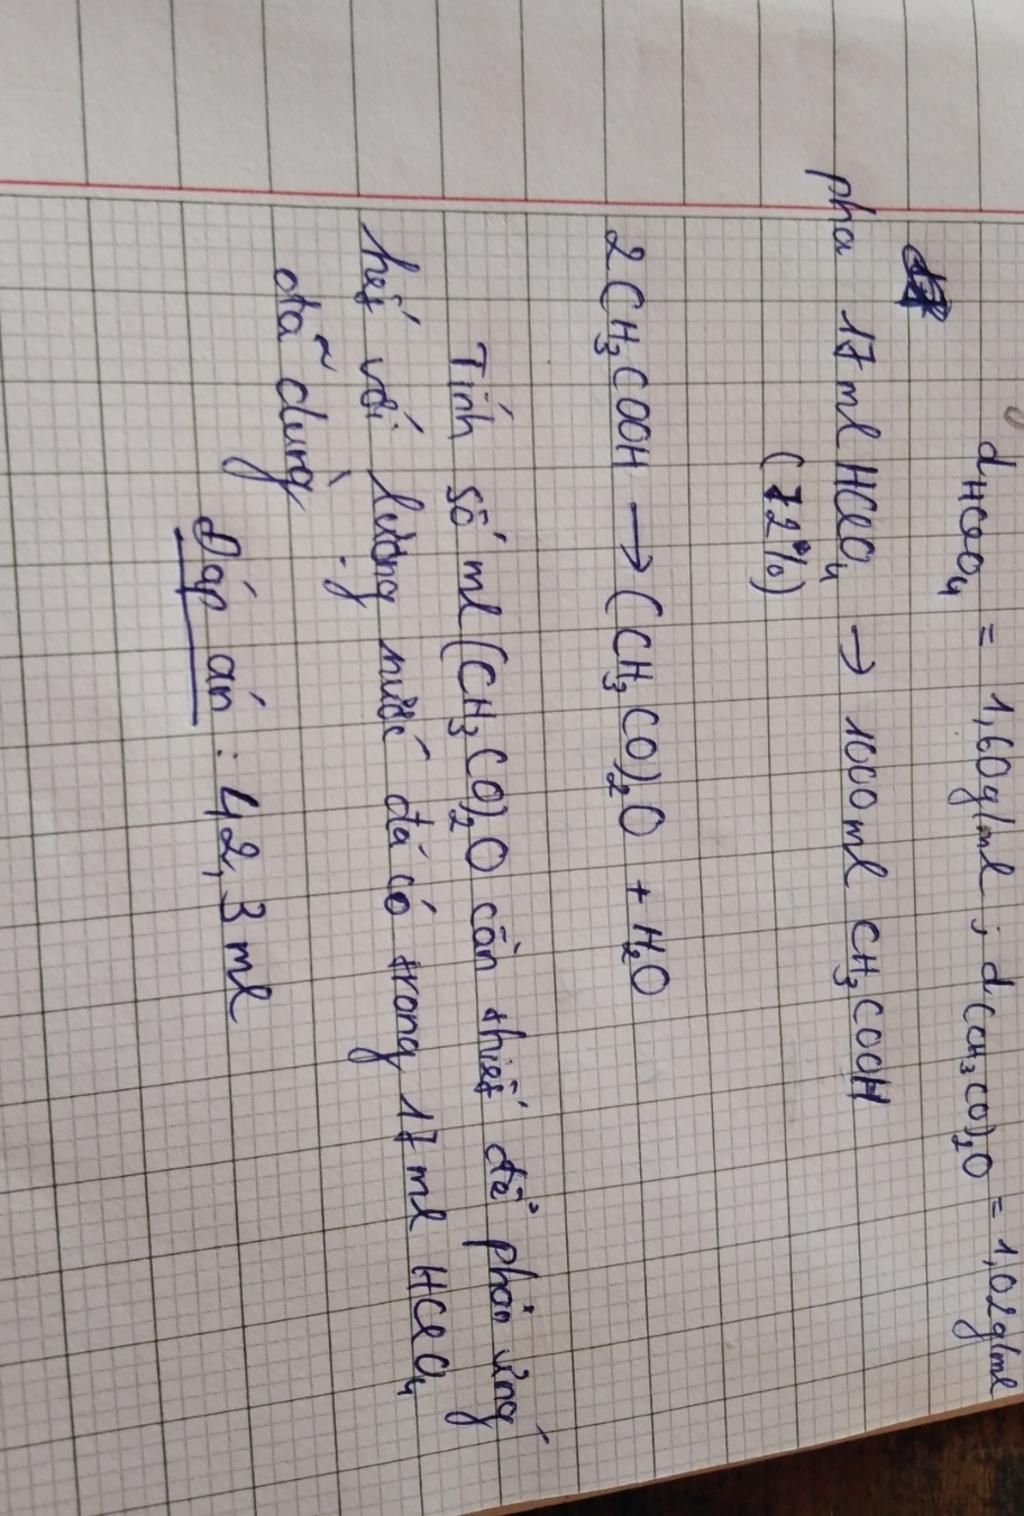 dHClO₄ = 1,60g/ml ; d(CH₃CO)₂O = 1,02g/ml
pha 17 ml HClO₄ → 1000 ml CH₃COOH
(72%)
2CH₃COOH → (CH₃CO)₂O + H₂O
Tính số ml (CH₃CO)₂O cần thiết để phản ứng
hết với lượng nước đã có trong 17 ml HClO₄
đã dùng.
Đáp án : 42,3 ml